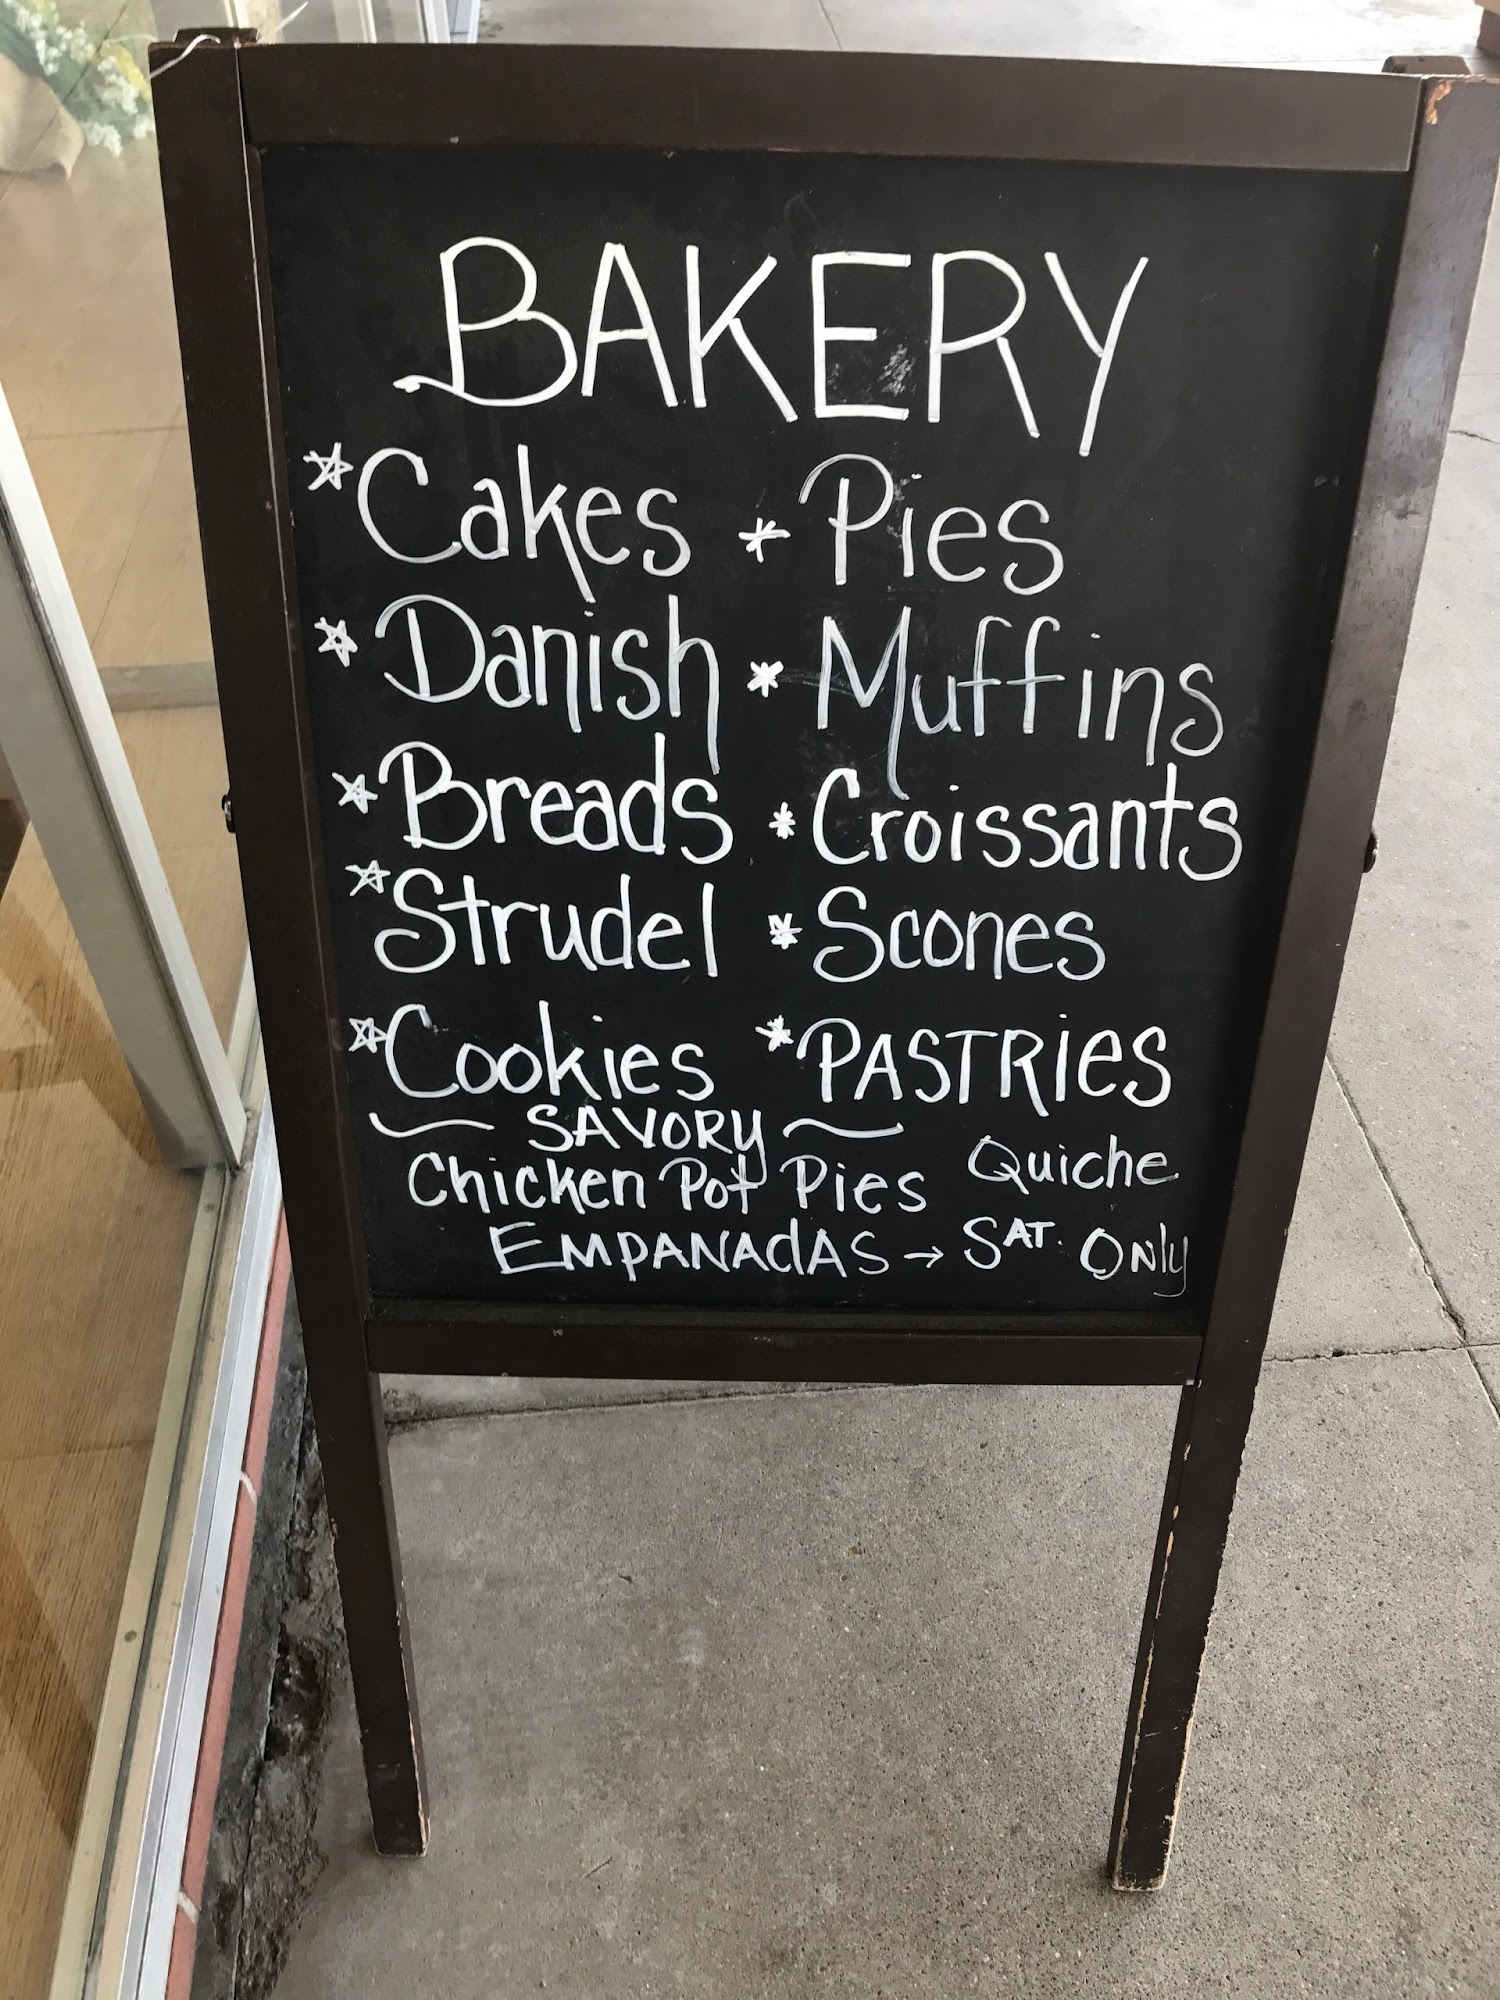 BAKERY
Cakes * Pies
Danish * Muffins
Breads * Croissants
Strudel * Scones
Cookies * PASTRies
~ SAVORY ~
Chicken Pot Pies Quiche
EMPANAdAS → SAT. ONly